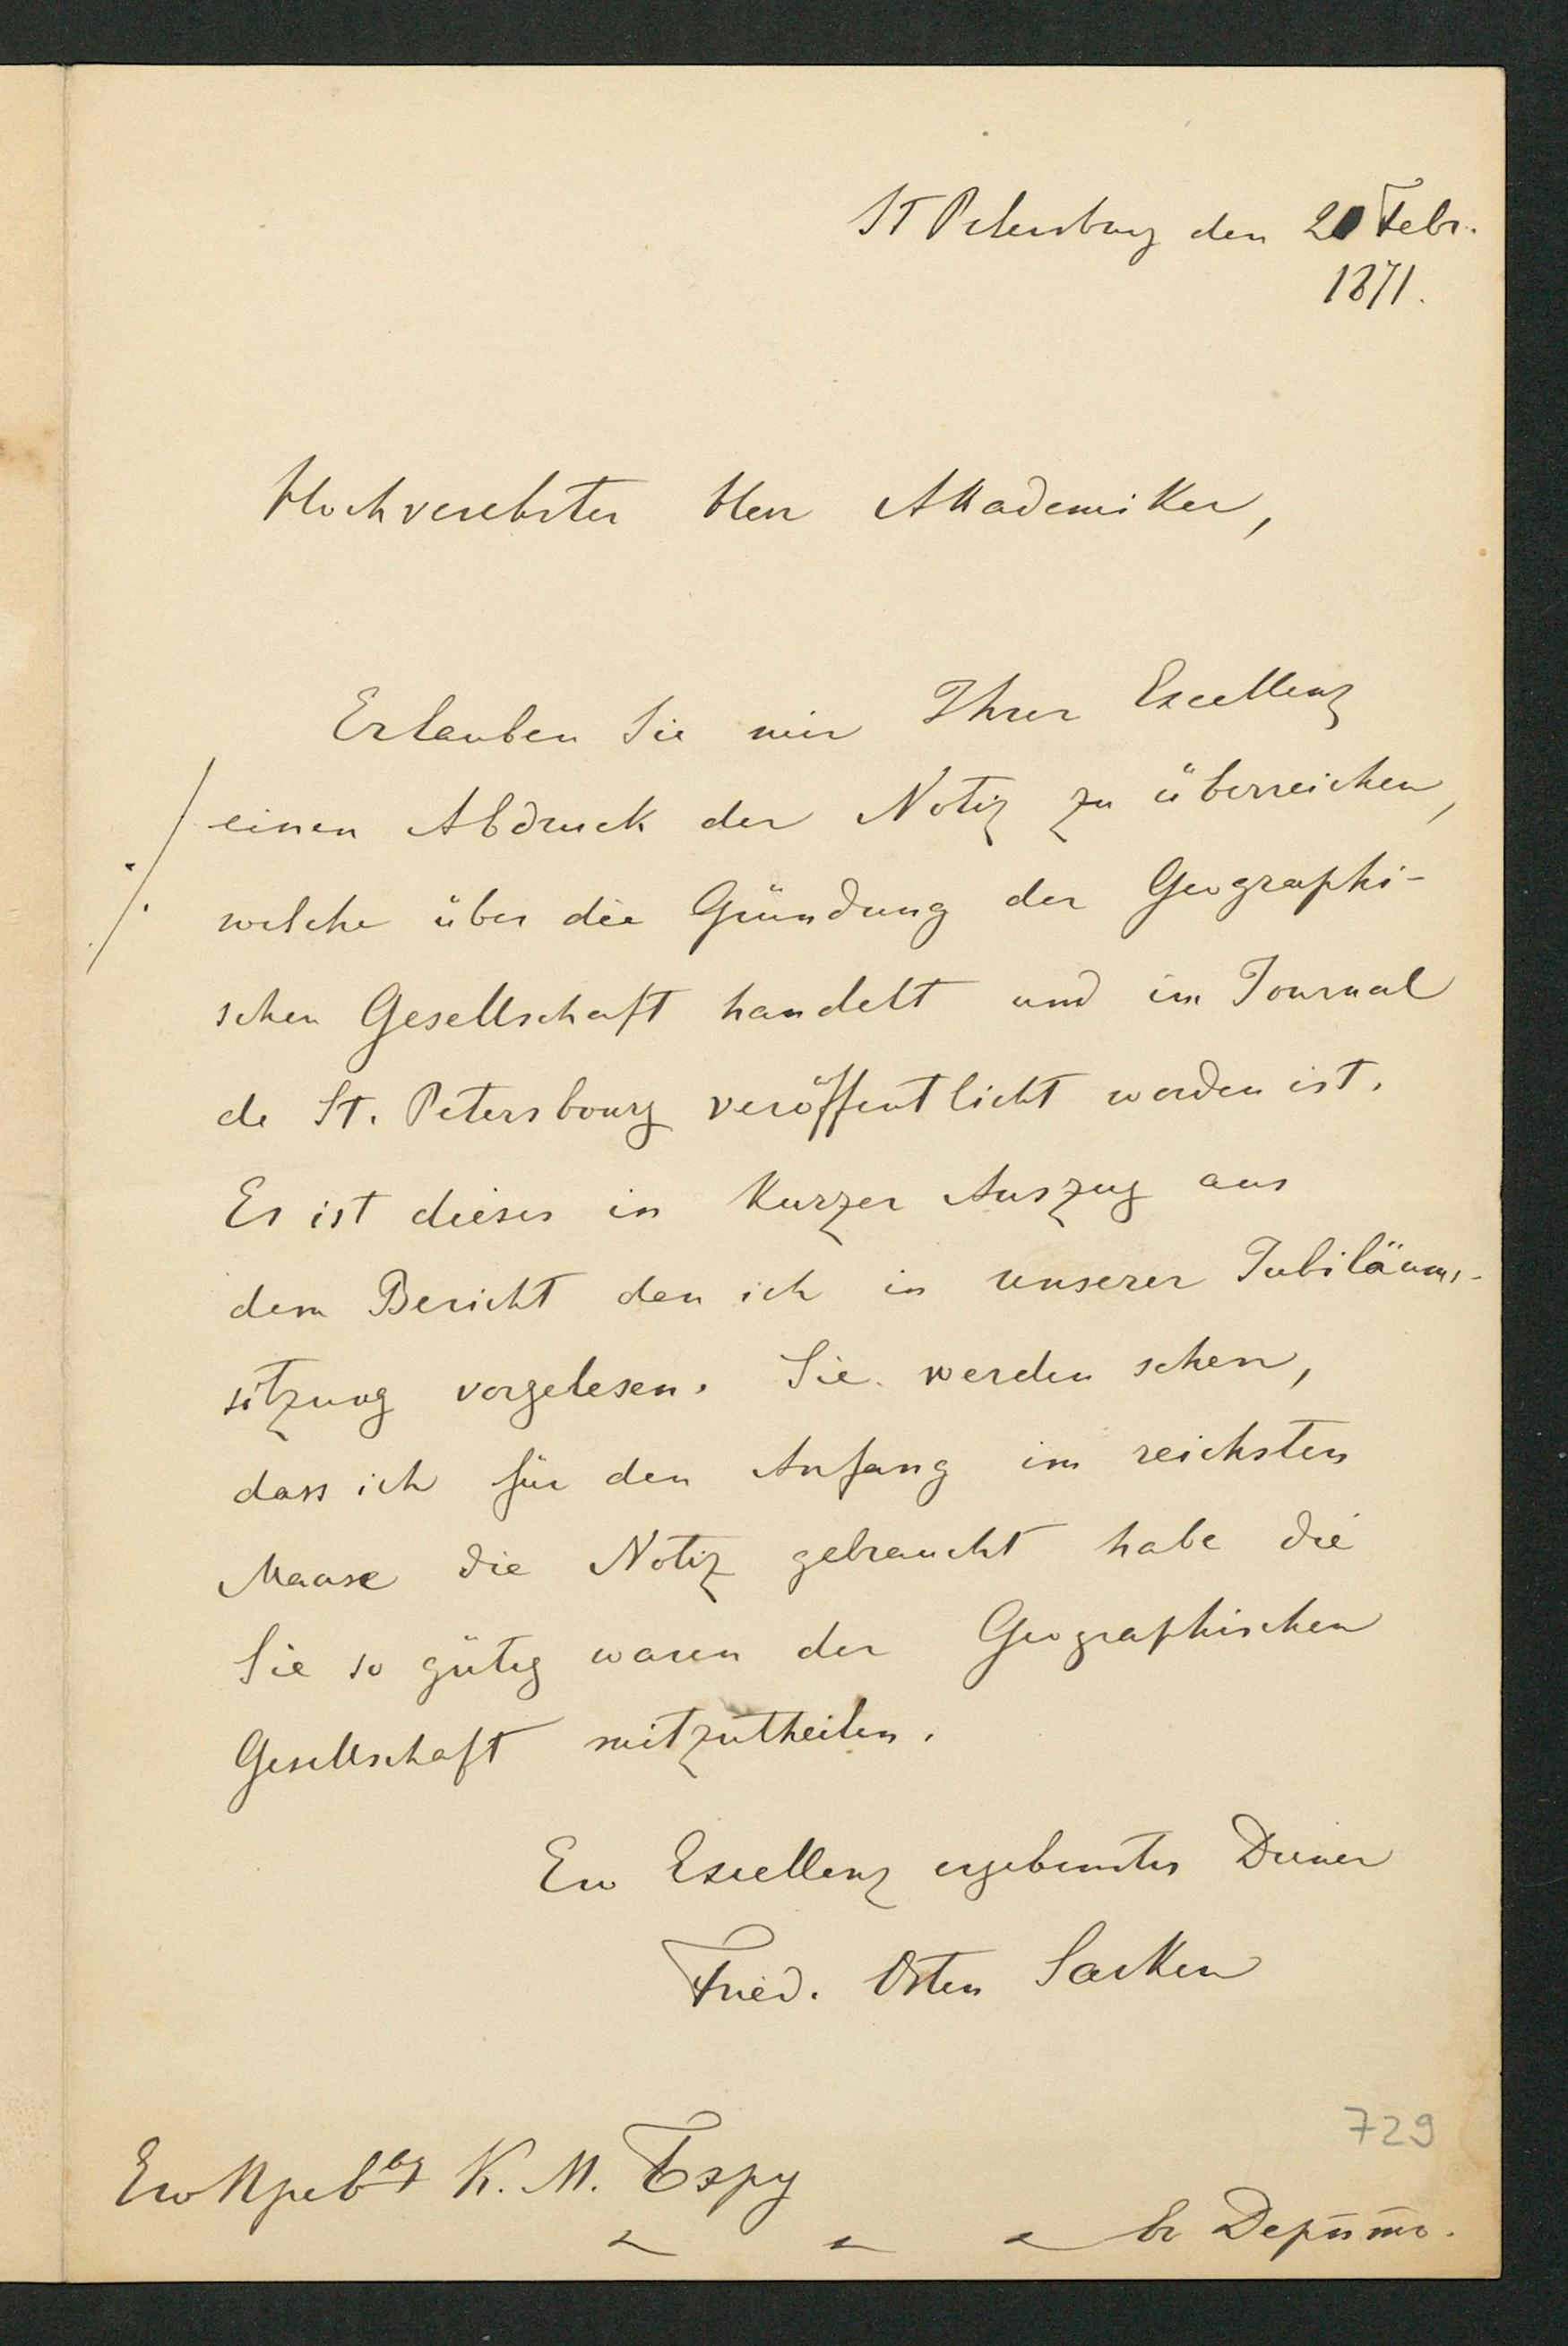 St Petersburg den 20 Febr.
1871.
Hochverehrter Herr Akademiker,
Erlauben Sie mir Ihrer Excellenz
einen Abdruck der Notiz zu überreichen,
welche über die Gründung der Geographi-
schen Gesellschaft handelt und im Journal
de St. Petersbourg veröffentlicht worden ist.
Es ist dieses in Kurzer Auszug aus
dem Bericht den ich in unserer Jubiläums-
sitzung vorgelesen. Sie werden sehen,
dass ich für den Anfang im reichsten
Maase die Notiz gebraucht habe die
Sie so gütig waren der Geographischen
Gesellschaft mitzutheilen.
Ew Excellenz ergebenster Diener
Fried. Osten Sacken
729
Его Прев К. М. Бэру
въ Дерптъ.